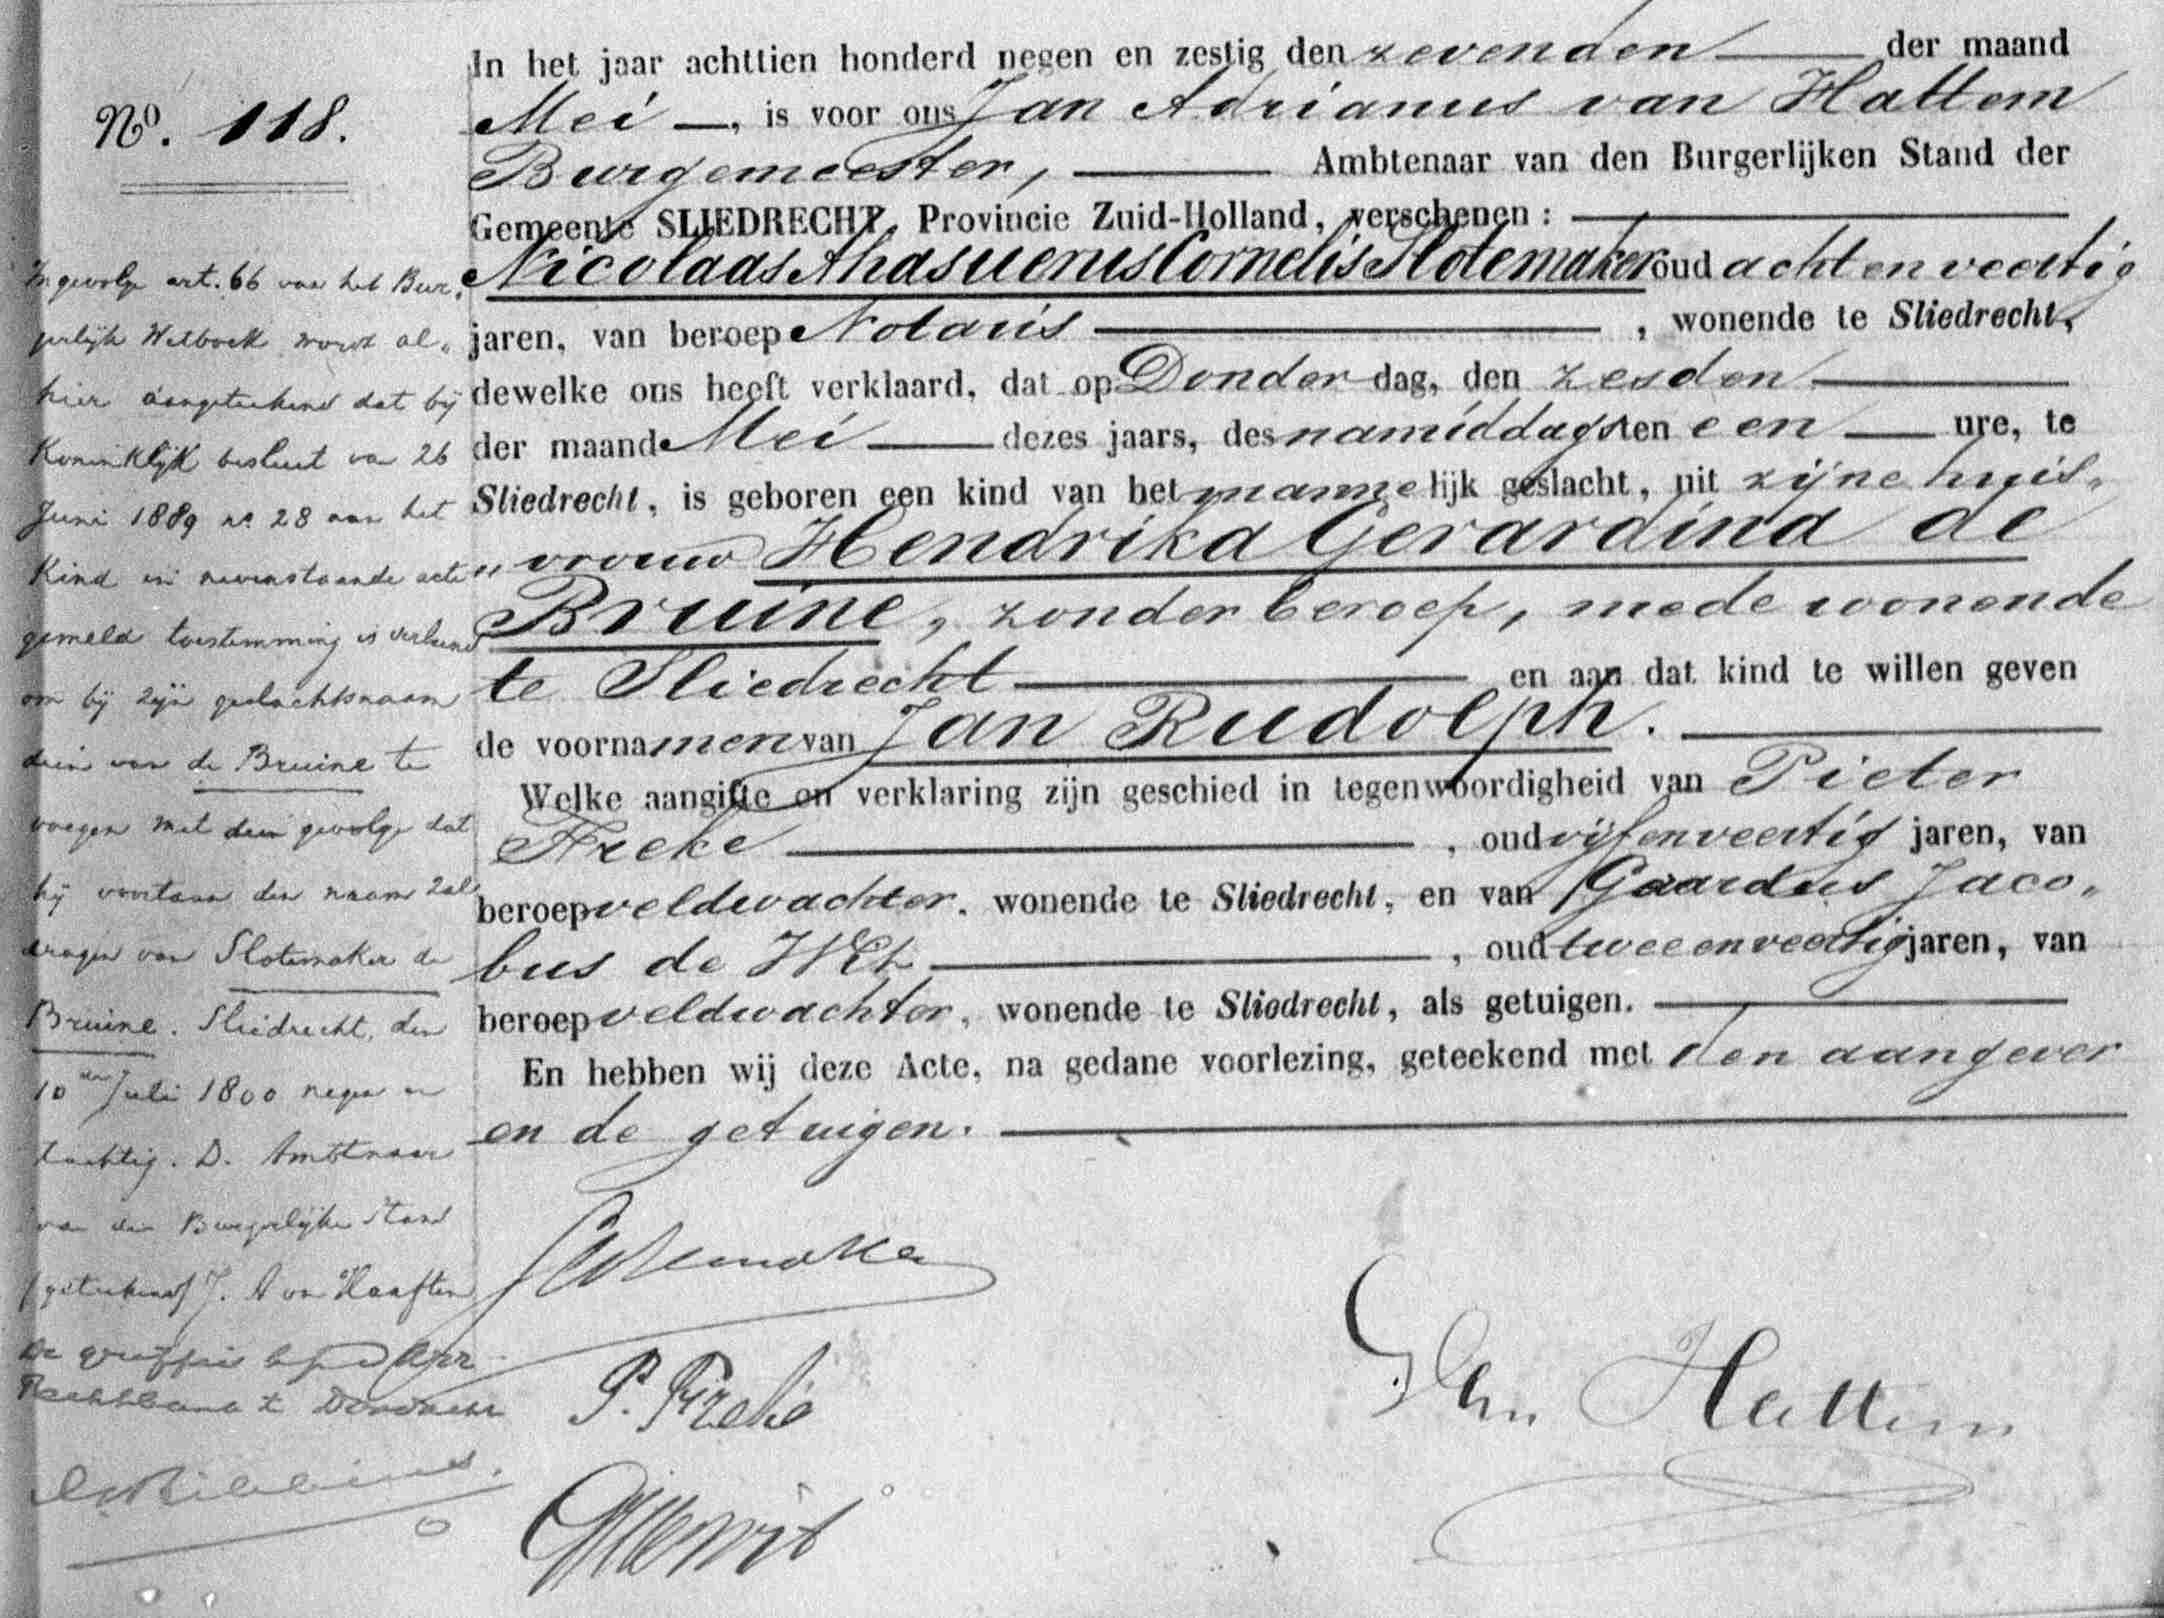 No. 118.
In het jaar achttien honderd negen en zestig den zevenden der maand
Mei, is voor ons Jan Adrianus van Hattem
Burgemeester, Ambtenaar van den Burgerlijken Stand der
Gemeente SLIEDRECHT, Provincie Zuid-Holland, verschenen:
Nicolaas Ahasuerus Cornelis Slotemaker oud acht en veertig
jaren, van beroep Notaris, wonende te Sliedrecht,
dewelke ons heeft verklaard, dat op Donderdag, den zesden
der maand Mei dezes jaars, des namiddags ten een ure, te
Sliedrecht, is geboren een kind van het mannelijk geslacht, uit zijne huis„
„vrouw Hendrika Gerardina de
Bruine, zonder beroep, mede wonende
te Sliedrecht en aan dat kind te willen geven
de voornamen van Jan Rudolph.
Welke aangifte en verklaring zijn geschied in tegenwoordigheid van Pieter
, oud vijfenveertig jaren, van
beroep veldwachter, wonende te Sliedrecht, en van Gaardus Jaco„
bus de Wit, oud tweeenveertig jaren, van
beroep veldwachter, wonende te Sliedrecht, als getuigen.
En hebben wij deze Acte, na gedane voorlezing, geteekend met den aangever
en de getuigen.
Ingevolge art. 66 van het Bur„
gerlijk Wetboek wordt al„
hier aangeteekend dat bij
Koninklijk besluit van 26
Juni 1889 no. 28 aan het
Kind in nevenstaande acte
gemeld toestemming is verleend
om bij zijn geslachtsnaam
dien van de Bruine te
voegen met dien gevolge dat
hij voortaan den naam zal
dragen van Slotemaker de
Bruine. Sliedrecht, den
10den Juli 1800 negen en
tachtig. D. Ambtenaar
van den Burgerlijken Stand
(geteekend) J. A van Haaften
De griffier bij de Arr.
Rechtbank te Dordrecht
Slotemaker
van Hattem
GJ de Wit